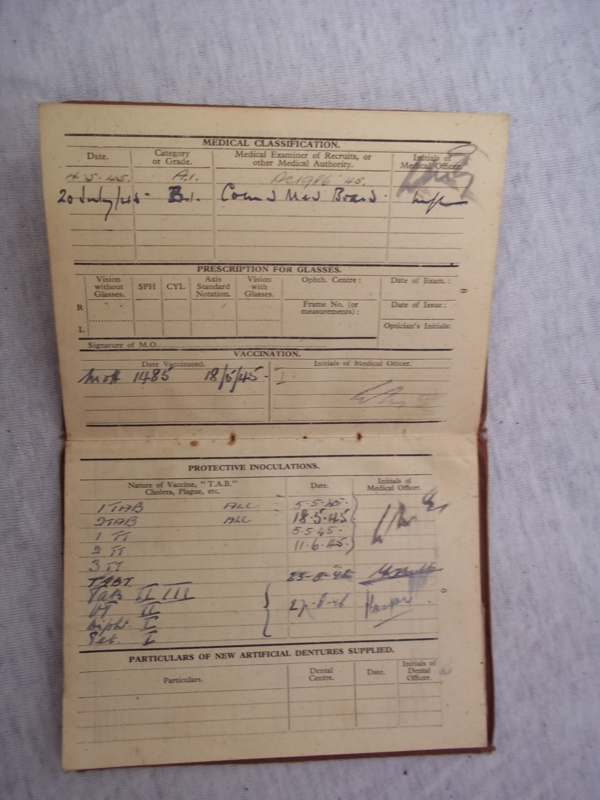 MEDICAL CLASSIFICATION.
Date. Category or Grade. Medical Examiner of Recruits, or other Medical Authority. Initials of Medical Officer.
4.5.45. A.1.
20 July/45 - B.1. Comd Med Board.
PRESCRIPTION FOR GLASSES.
Vision without Glasses. SPH CYL Axis Standard Notation. Vision with Glasses. Ophth. Centre: Date of Exam.:
R Frame No. (or measurements): Date of Issue:
L Optician's Initials:
Signature of M.O.
VACCINATION.
Date Vaccinated. Initials of Medical Officer.
1485 18/5/45 - I
PROTECTIVE INOCULATIONS.
Nature of Vaccine, "T.A.B." Cholera, Plague, etc. Date. Initials of Medical Officer.
1 TAB ALL 5-5-45-
2 TAB ALL 18.5.45
1 TT 5.5.45-
2 TT 11.6.45-
3 TT
TABT
TAB II III
TT II
Dipht. I
Tet. I
PARTICULARS OF NEW ARTIFICIAL DENTURES SUPPLIED.
Particulars. Dental Centre. Date. Initials of Dental Officer.